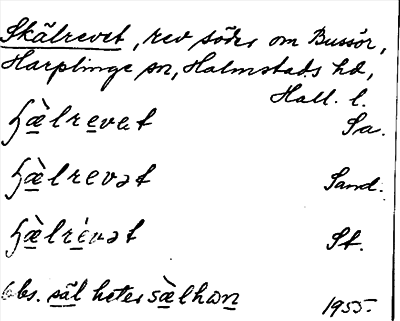 Skälrevet, rev söder om Bussör,
Harplinge sn, Halmstads hd,
Hall. l.
ʃæ̀lrevət Sa.
ʃæ̀lrevət Sand.
ʃæ̀lrévət St.
Obs. säl heter sæ̀lhɷn 1955.